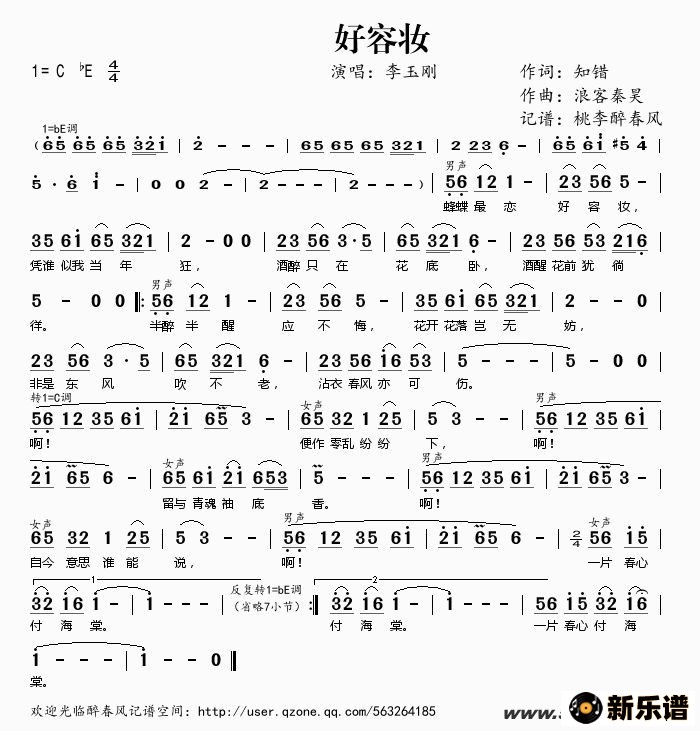 好容妆
1= C ♭E 4/4
演唱：李玉刚
作词：知错
作曲：浪客秦昊
记谱：桃李醉春风
1=bE调
( 65 65 65 321 | 2 - - - | 65 65 65 321 | 2 23 6 - | 65 61 #5 4
5 · 6 1 - | 0 0 2 - | 2 - - - | 2 - - - ) | 56 12 1 - | 23 56 5 - |
男声
蝶蝶 最 恋 好 容 妆，
35 61 65 321 | 2 - 0 0 | 23 56 3 · 5 | 65 321 6 - | 23 56 53 216 |
凭谁 似我 当 年 狂， 酒醉 只 在 花 底 卧， 酒醒 花前 犹 徜
男声
5 - 0 0 ‖: 56 12 1 - | 23 56 5 - | 35 61 65 321 | 2 - 0 0 |
徉。 半醉 半 醒 应 不 悔， 花开 花落 岂 无 妨，
23 56 3 · 5 | 65 321 6 - | 23 56 16 53 | 5 - - - | 5 - 0 0 |
非是 东 风 吹 不 老， 沾衣 春风 亦 可 伤。
转1=C调
女声
男声
56 12 35 61 | 21 65 3 - | 65 32 1 25 | 5 3 - - | 56 12 35 61 |
啊！ 便作 零乱 纷 纷 下， 啊！
女声
男声
21 65 6 - | 65 61 21 653 | 5 - - - | 56 12 35 61 | 21 65 3 - |
留与 青魂 袖 底 香。 啊！
女声
男声
女声
65 32 1 25 | 5 3 - - | 56 12 35 61 | 21 65 6 - | 2/4 56 15 |
自今 意思 谁 能 说， 啊！ 一片 春心
1
反复转1=bE调
2
32 16 1 - | 1 - - - | (省略7小节) :‖ 32 16 1 - | 1 - - - | 56 15 32 16 |
付 海 棠。 付 海 棠。 一片 春心 付 海
1 - - - | 1 - - 0 ‖
棠。
欢迎光临醉春风记谱空间：http://user.qzone.qq.com/563264185
www.
新乐谱